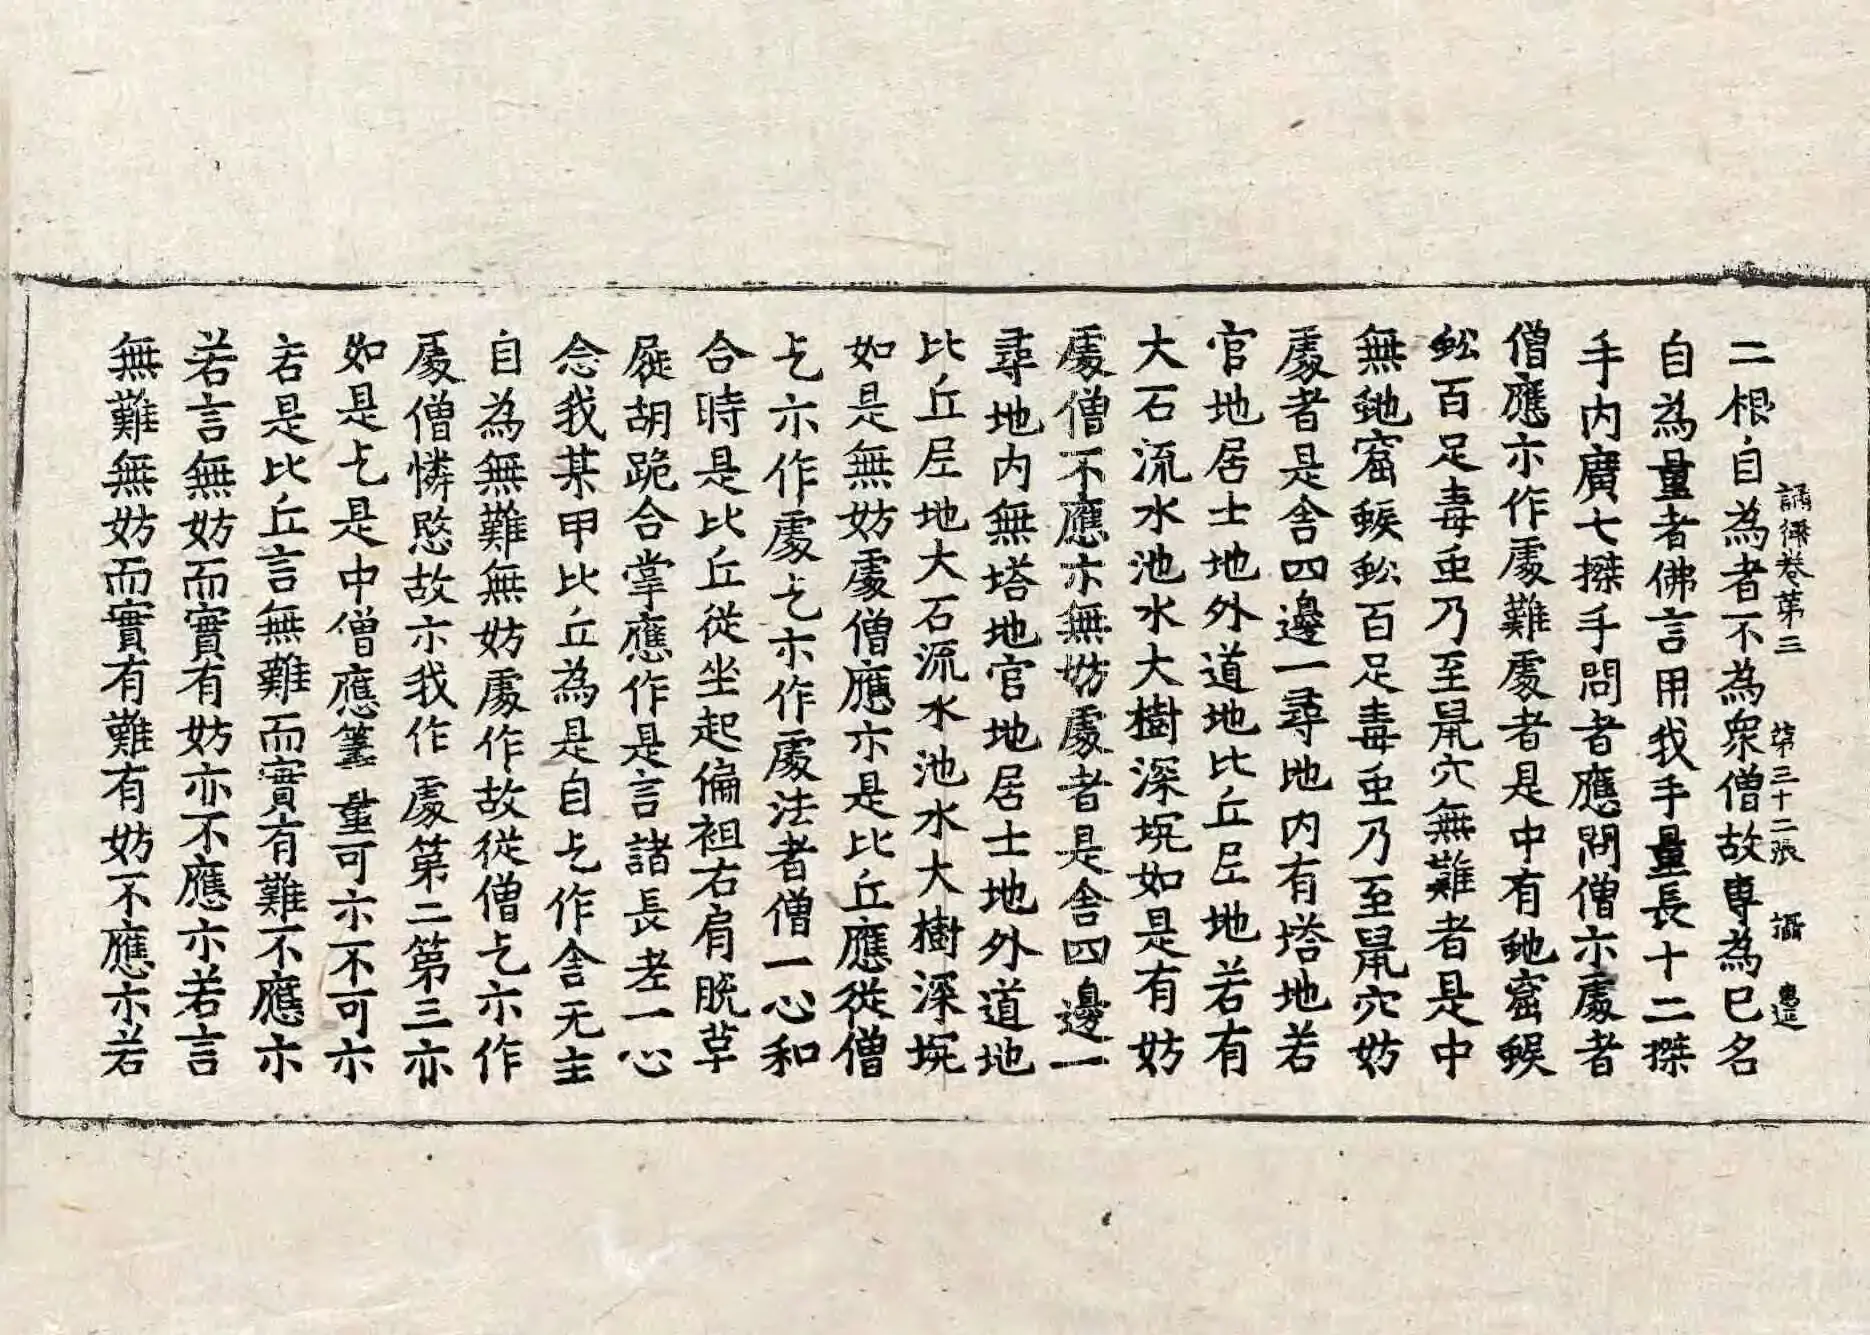 誦律卷第三 第三十二張 攝 惠造
二根自為者不為衆僧故專為已名
自為量者佛言用我手量長十二搩
手內廣七搩手問者應問僧示處者
僧應示作處難處者是中有虵窟蜈
蚣百足毒䖝乃至鼠穴無難者是中
無虵窟蜈蚣百足毒䖝乃至鼠穴妨
處者是舍四邊一尋地内有塔地若
官地居士地外道地比丘尼地若有
大石流水池水大樹深坑如是有妨
處僧不應示無妨處者是舍四邊一
尋地内無塔地官地居士地外道地
比丘尼地大石流水池水大樹深坑
如是無妨處僧應示是比丘應從僧
乞示作處乞示作處法者僧一心和
合時是比丘從坐起偏袒右肩脫草
屣胡跪合掌應作是言諸長老一心
念我某甲比丘為是自乞作舍无主
自為無難無妨處作故從僧乞示作
處僧憐愍故示我作處第二第三亦
如是乞是中僧應籌量可示不可示
若是比丘言無難而實有難不應示
若言無妨而實有妨亦不應示若言
無難無妨而實有難有妨不應示若